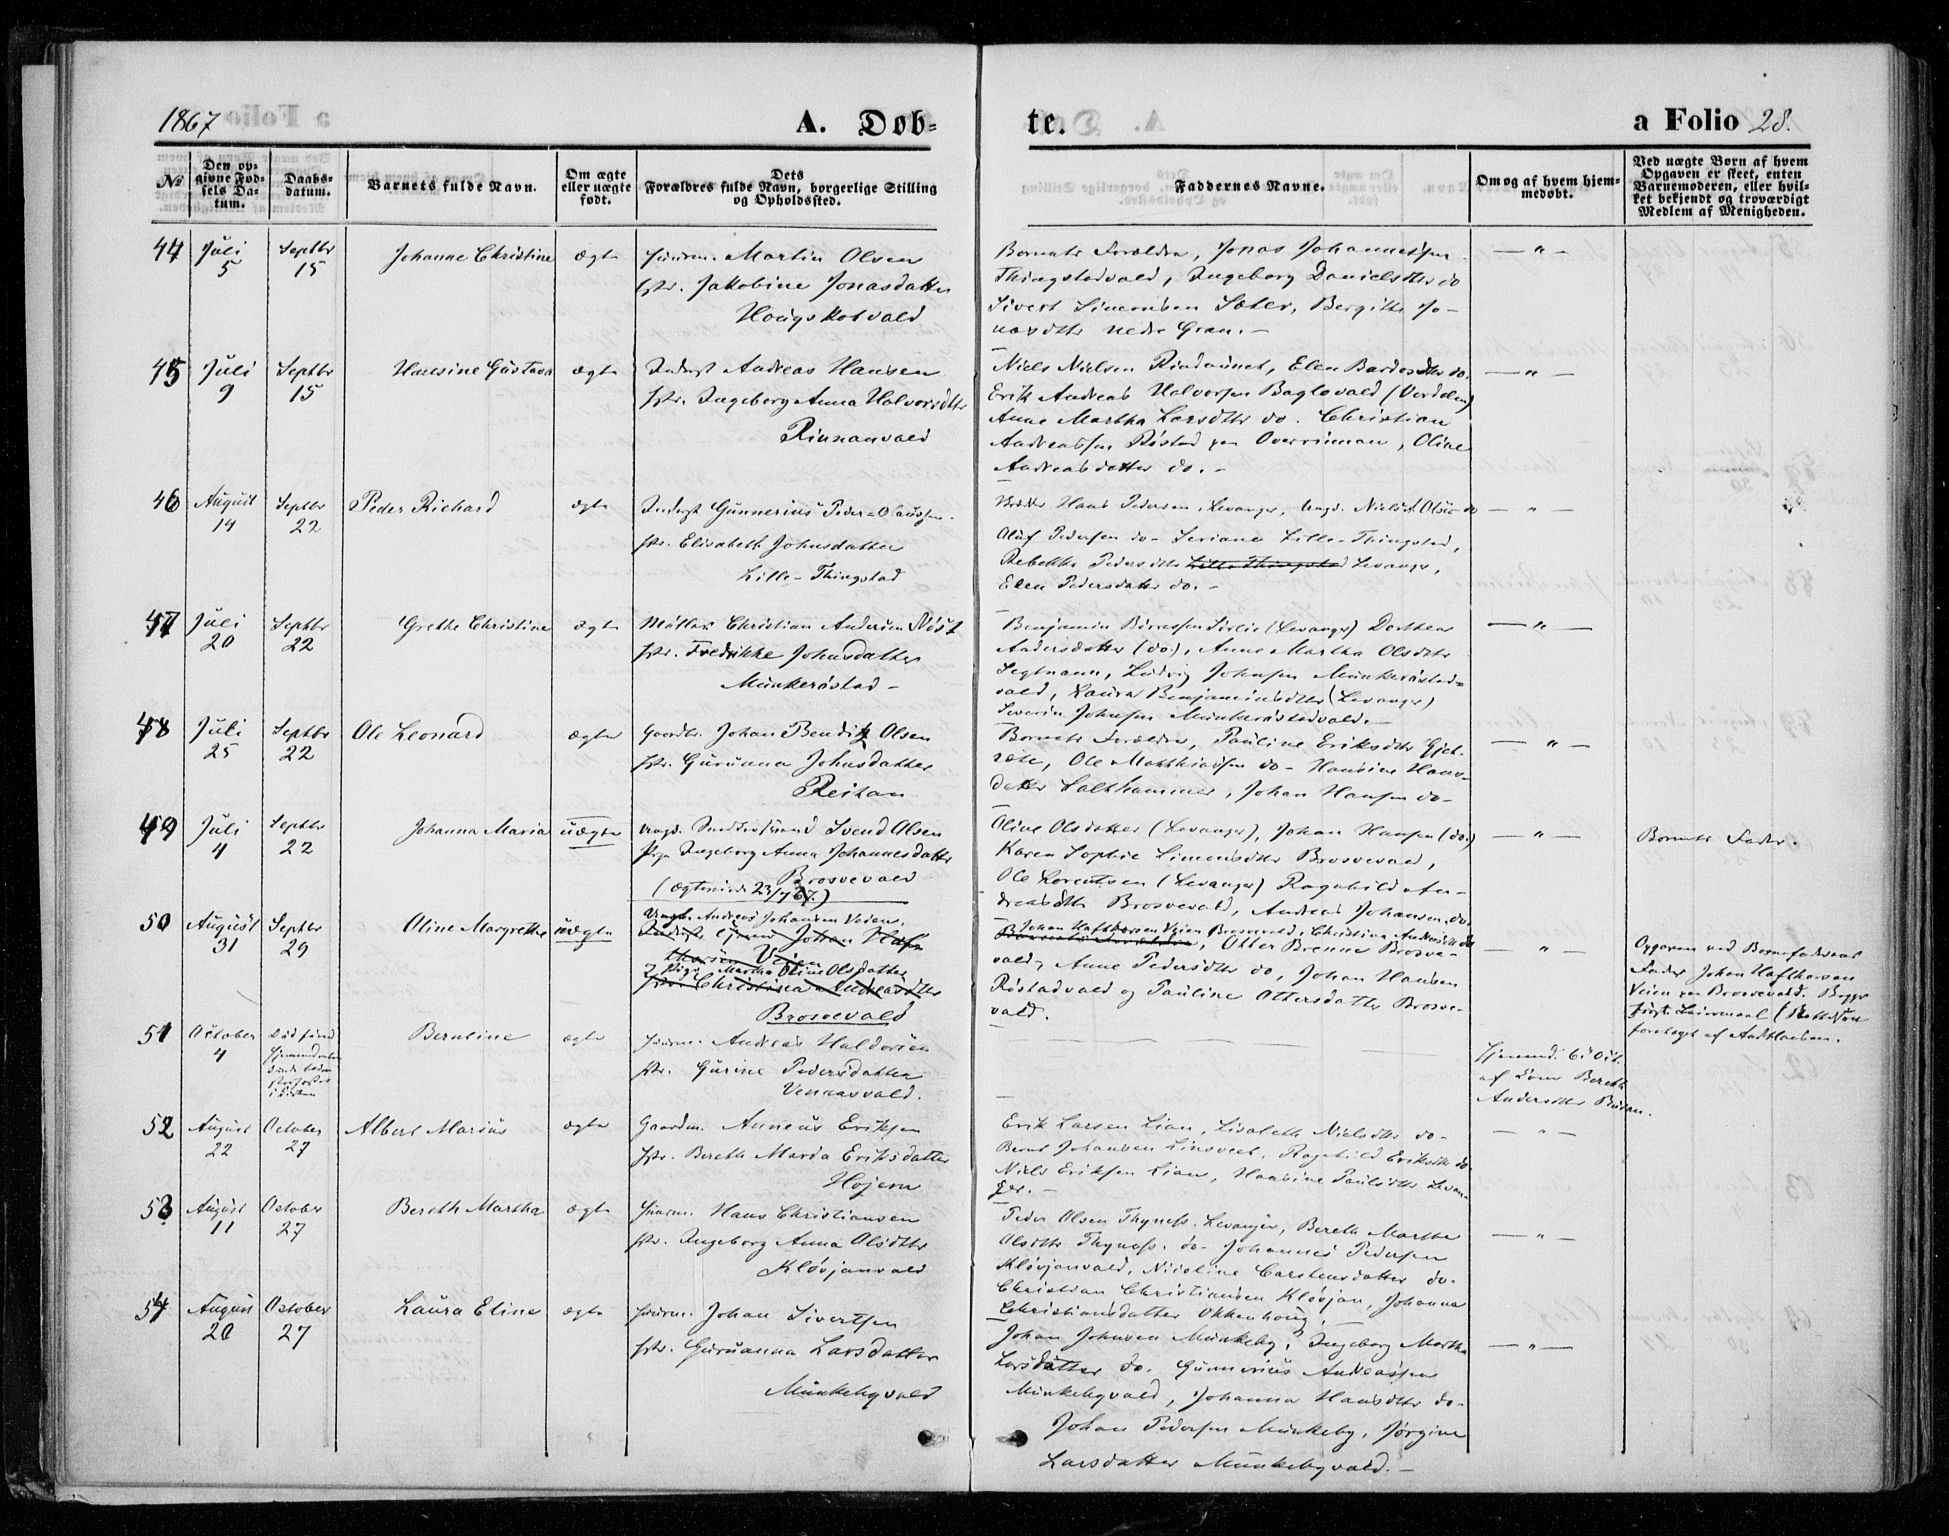 1867
A. Døb-
te.
a Folio 28.
№
Den opgivne Fødsels Datum.
Daabsdatum.
Barnets fulde Navn.
Om ægte eller uægte født.
Dets Forældres fulde Navn, borgerlige Stilling og Opholdssted.
Faddernes Navne.
Om og af hvem hjemmedøbt.
Ved uægte Børn af hvem Opgaven er skeet, enten Barnemoderen, eller hvilket bekjendt og troværdigt Medlem af Menigheden.
44 Juli 5 Septbr 15 Johanne Christine ægte
Martin Olsen
Jakobine Jonasdatter
Hougskotvald
Barnets Forældre, Jonas Johannessen
Thingstadvald, Ingeborg Danielsdtr do
Sivert Simonsen Sæter, Bergitte Jo-
nasdtr nedr Gran. —
— " —
45 Juli 9 Septbr 15 Hansine Gustava ægte
Inderst Andreas Hansen
Ingeborg Anna Halvorsdtr
Rinnanvald
Niels Nielsen Rindsunet, Elen Bardosdtr do.
Erik Andreas Halvorsen Baglovald (Verdalen)
Anne Martha Larsdtr do. Christian
Andreassen Røstad Overrinnan, Oline
Andreasdatter do. —
— " —
46 August 14 Septbr 22 Peder Richard ægte
Inderst Gunnerius Peder-Olaussen.
Elisabeth Johnsdatter
Lille-Thingstad
Hans Pedersen, Levanger, Ungk. Niels Olsen do
Oluf Pedersen do - Seriane Lille-Thingstad,
Rebekka Pedersdtr Lille Thingstad Levanger,
Elen Pedersdatter do. —
— " —
47 Juli 20 Septbr 22 Grethe Christine ægte
Møller Christian Andersen Røst
Fredrikke Johnsdatter
Munkerøstad —
Benjamin Børresen (Levanger) Dorthea
Andersdatter (do), Anne Martha Olsdtr
Segtnan, Ludvig Johnsen Munkerøstad-
vald, Laura Benjaminsdtr (Levanger)
Severin Johnsen Munkerøstadvald. —
— " —
48 Juli 25 Septbr 22 Ole Leonard ægte
Gaardbr. Johan Bendik Olsen
Gurunna Johnsdatter
Reitan
Barnets Forældre, Pauline Eriksdtr
Ole Matthiassen do - Hansine Hans-
datter Salthammer, Johan Hansen do —
— " —
49 Juli 4 Septbr 22 Johanna Maria uægte
Ungk. Svend Olsen
Pige Ingeborg Anna Johannesdatter
Brosvevald
23/7 67.)
Oline Olsdatter (Levanger), Johan Hansen (do.)
Karen Sophie Simonsdtr Brosvevald,
Ole Lorentsen (Levanger) Ragnhild An-
dreasdtr Brosvevald, Andreas Johansen do.
— " —
Barnets Fader.
50 August 31 Septbr 29 Oline Margrethe uægte
Ungk. Andreas Johansen Veien.
Johan Hafthorsen Veien
Pige Martha Oline Olsdatter
Christina Andreasdtr
Brosvevald
Johan Hafthorsen Veien Brosvevald, Christina Andreasdtr do
Barnets Forældre, Otter Brenne Brosve-
vald, Anne Pedersdtr do, Johan Hansen
Røstadvald og Pauline Ottersdatter Brosve-
vald.
— " —
Opgaven ved Barnefaderens
Fader Johan Hafthorsen
Veien Brosvevald. Begges
første Leiermaal
foretaget af
51 October 4 Berntine ægte
Andreas Haldorsen
Gurine Pedersdatter
Vennasvald.
Hjemmd. 6 Oct.
af Bereth
Andersdtr Reitan.
52 August 22 October 27 Albert Marius ægte
Gaardm. Anneus Eriksen
Bereth Marta Eriksdatter
Hojem
Erik Larsen Lian, Lisabeth Nielsdtr do —
Bernt Johansen Linsvet, Ragnhild Eriksdtr do
Niels Eriksen Lian, Hansine Paulsdtr Levan-
ger. —
— " —
53 August 11 October 27 Bereth Martha ægte
Hans Christiansen
Ingeborg Anna Olsdtr
Kløvjanvald
Peder Olsen Thynes, Levanger, Bereth Martha
Olsdtr Thynes. do - Johannes Pedersen
Kløvjanvald, Nicoline Carstensdatter do.
Christian Christiansen Kløvjan, Johanna
Christiansdatter Okkenhoug,
— " —
54 August 20 October 27 Laura Eline ægte
Johan Sivertsen
Guruanna Larsdatter
Munkebyvald
Johan Johnsen Munkeby, Ingeborg Martha
Larsdatter do. Gunnerius Andreassen
Munkebyvald, Johanna Hansdtr do —
Johan Pedersen Munkeby, Jørgine
Larsdatter Munkebyvald. —
— " —